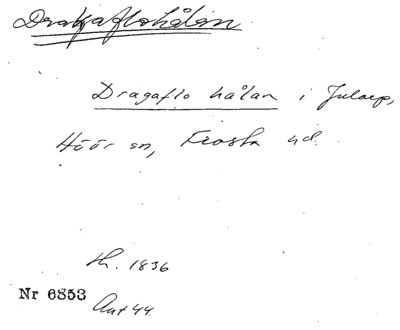 Dragaflohålan
Dragaflo hålan i Jularp,
Höör sn, Frosta hd.
th. 1836
Nr 6853
Ant 44.